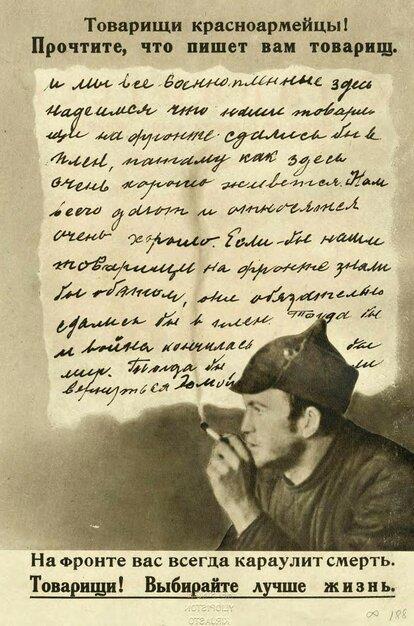 Товарищи красноармейцы!
Прочтите, что пишет вам товарищ.
и мы все военнопленные здесь
надеимся что наши товари-
щи на фронте сдались бы в
плен, патаму как здесь
очень хорошо живется. Нам
всего дают и относятся
очень хорошо. Если бы наши
товарищи на фронте знали
бы обэтом, они обязательно
сдались бы в плен. Тогда бы
и война кончилась бы
мир. Тогда бы ли
вернуться домой
На фронте вас всегда караулит смерть.
Товарищи! Выбирайте лучше жизнь.
188